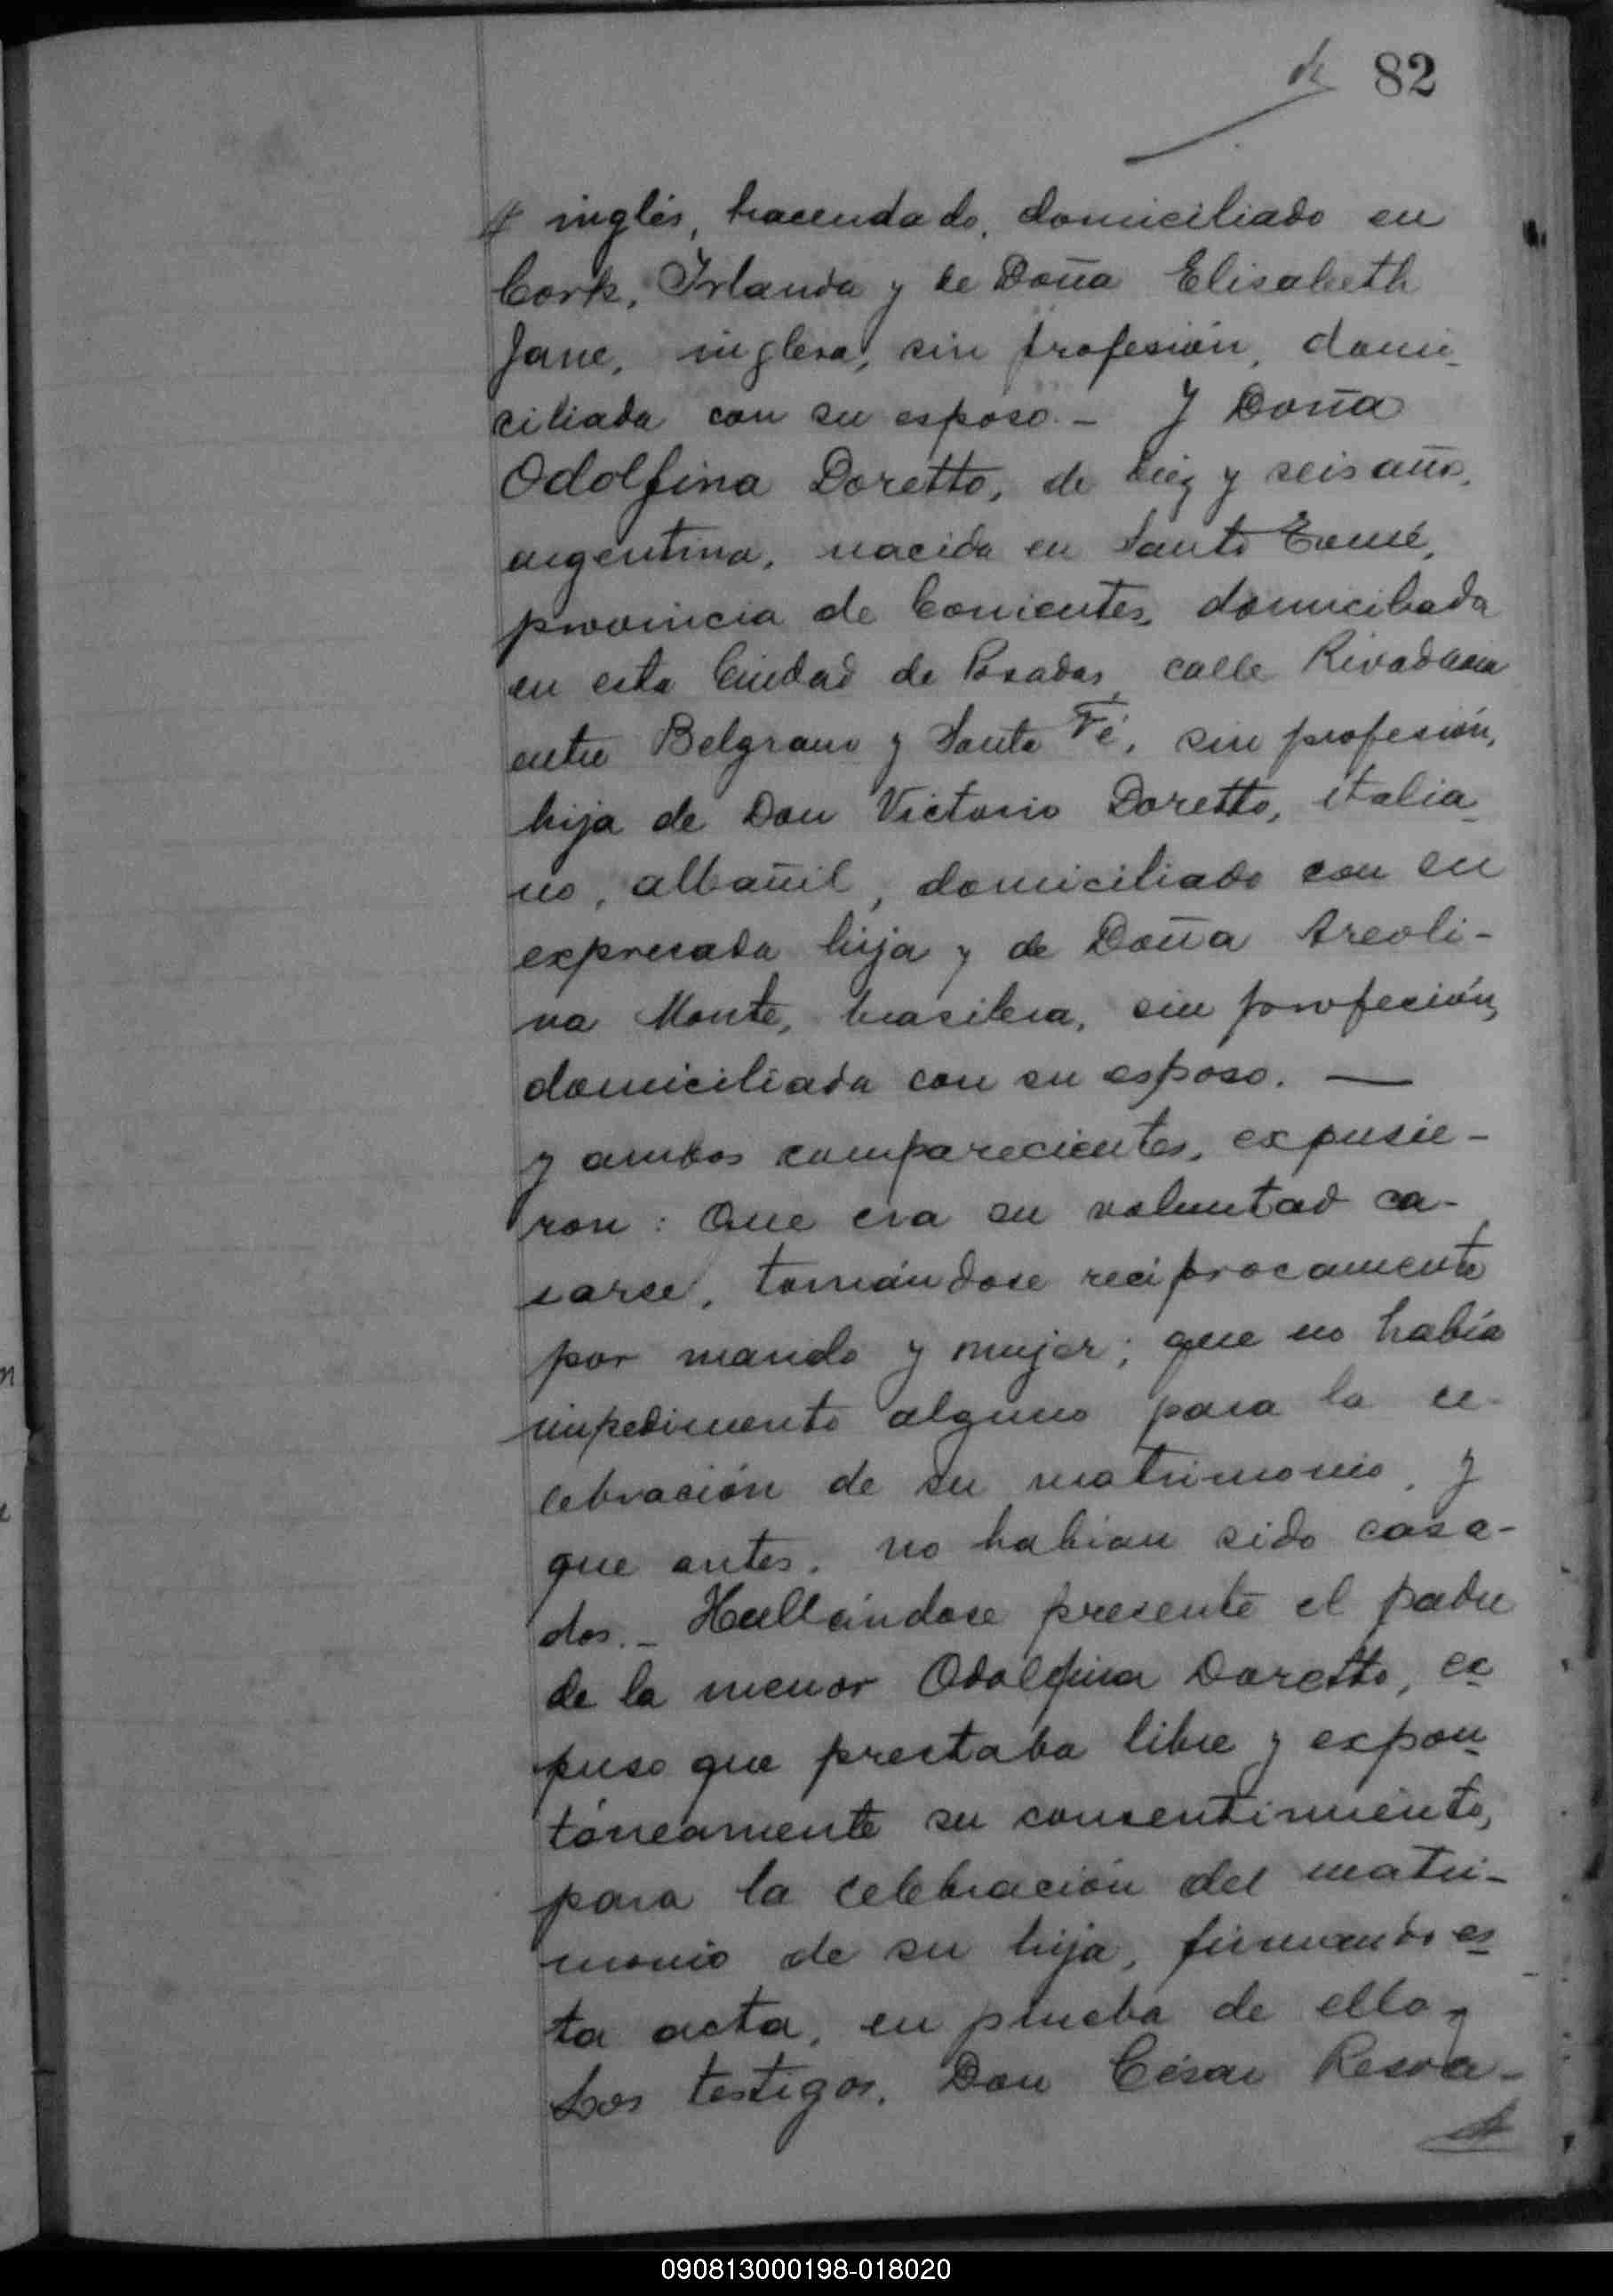 82
inglés, hacendado, domiciliado en
Cork, Irlanda y de Doña Elisabeth
Jane, inglesa, sin profesión, domi-
ciliada con su esposo. - Y Doña
Odolfina Doretto, de diez y seis años,
argentina, nacida en Santo Tomé,
provincia de Corrientes, domiciliada
en esta Ciudad de Posadas, calle Rivadavia
entre Belgrano y Santa Fé, sin profesión,
hija de Don Victorio Doretto, italia-
no, albañil, domiciliado con su
expresada hija y de Doña Areoli-
na Monte, brasilera, sin profesión,
domiciliada con su esposo. —
y ambos comparecientes, expusie-
ron: Que era su voluntad ca-
sarse, tomándose recíprocamente
por marido y mujer; que no había
impedimento alguno para la ce-
lebración de su matrimonio, y
que antes, no habían sido casa-
dos. - Hallándose presente el padre
de la menor Odolfina Doretto, ex
puso que prestaba libre y expon
táneamente su consentimiento,
para la celebración del matri-
monio de su hija, firmando es
ta acta, en prueba de ello. -
Los testigos, Don César Resoa-
090813000198-018020